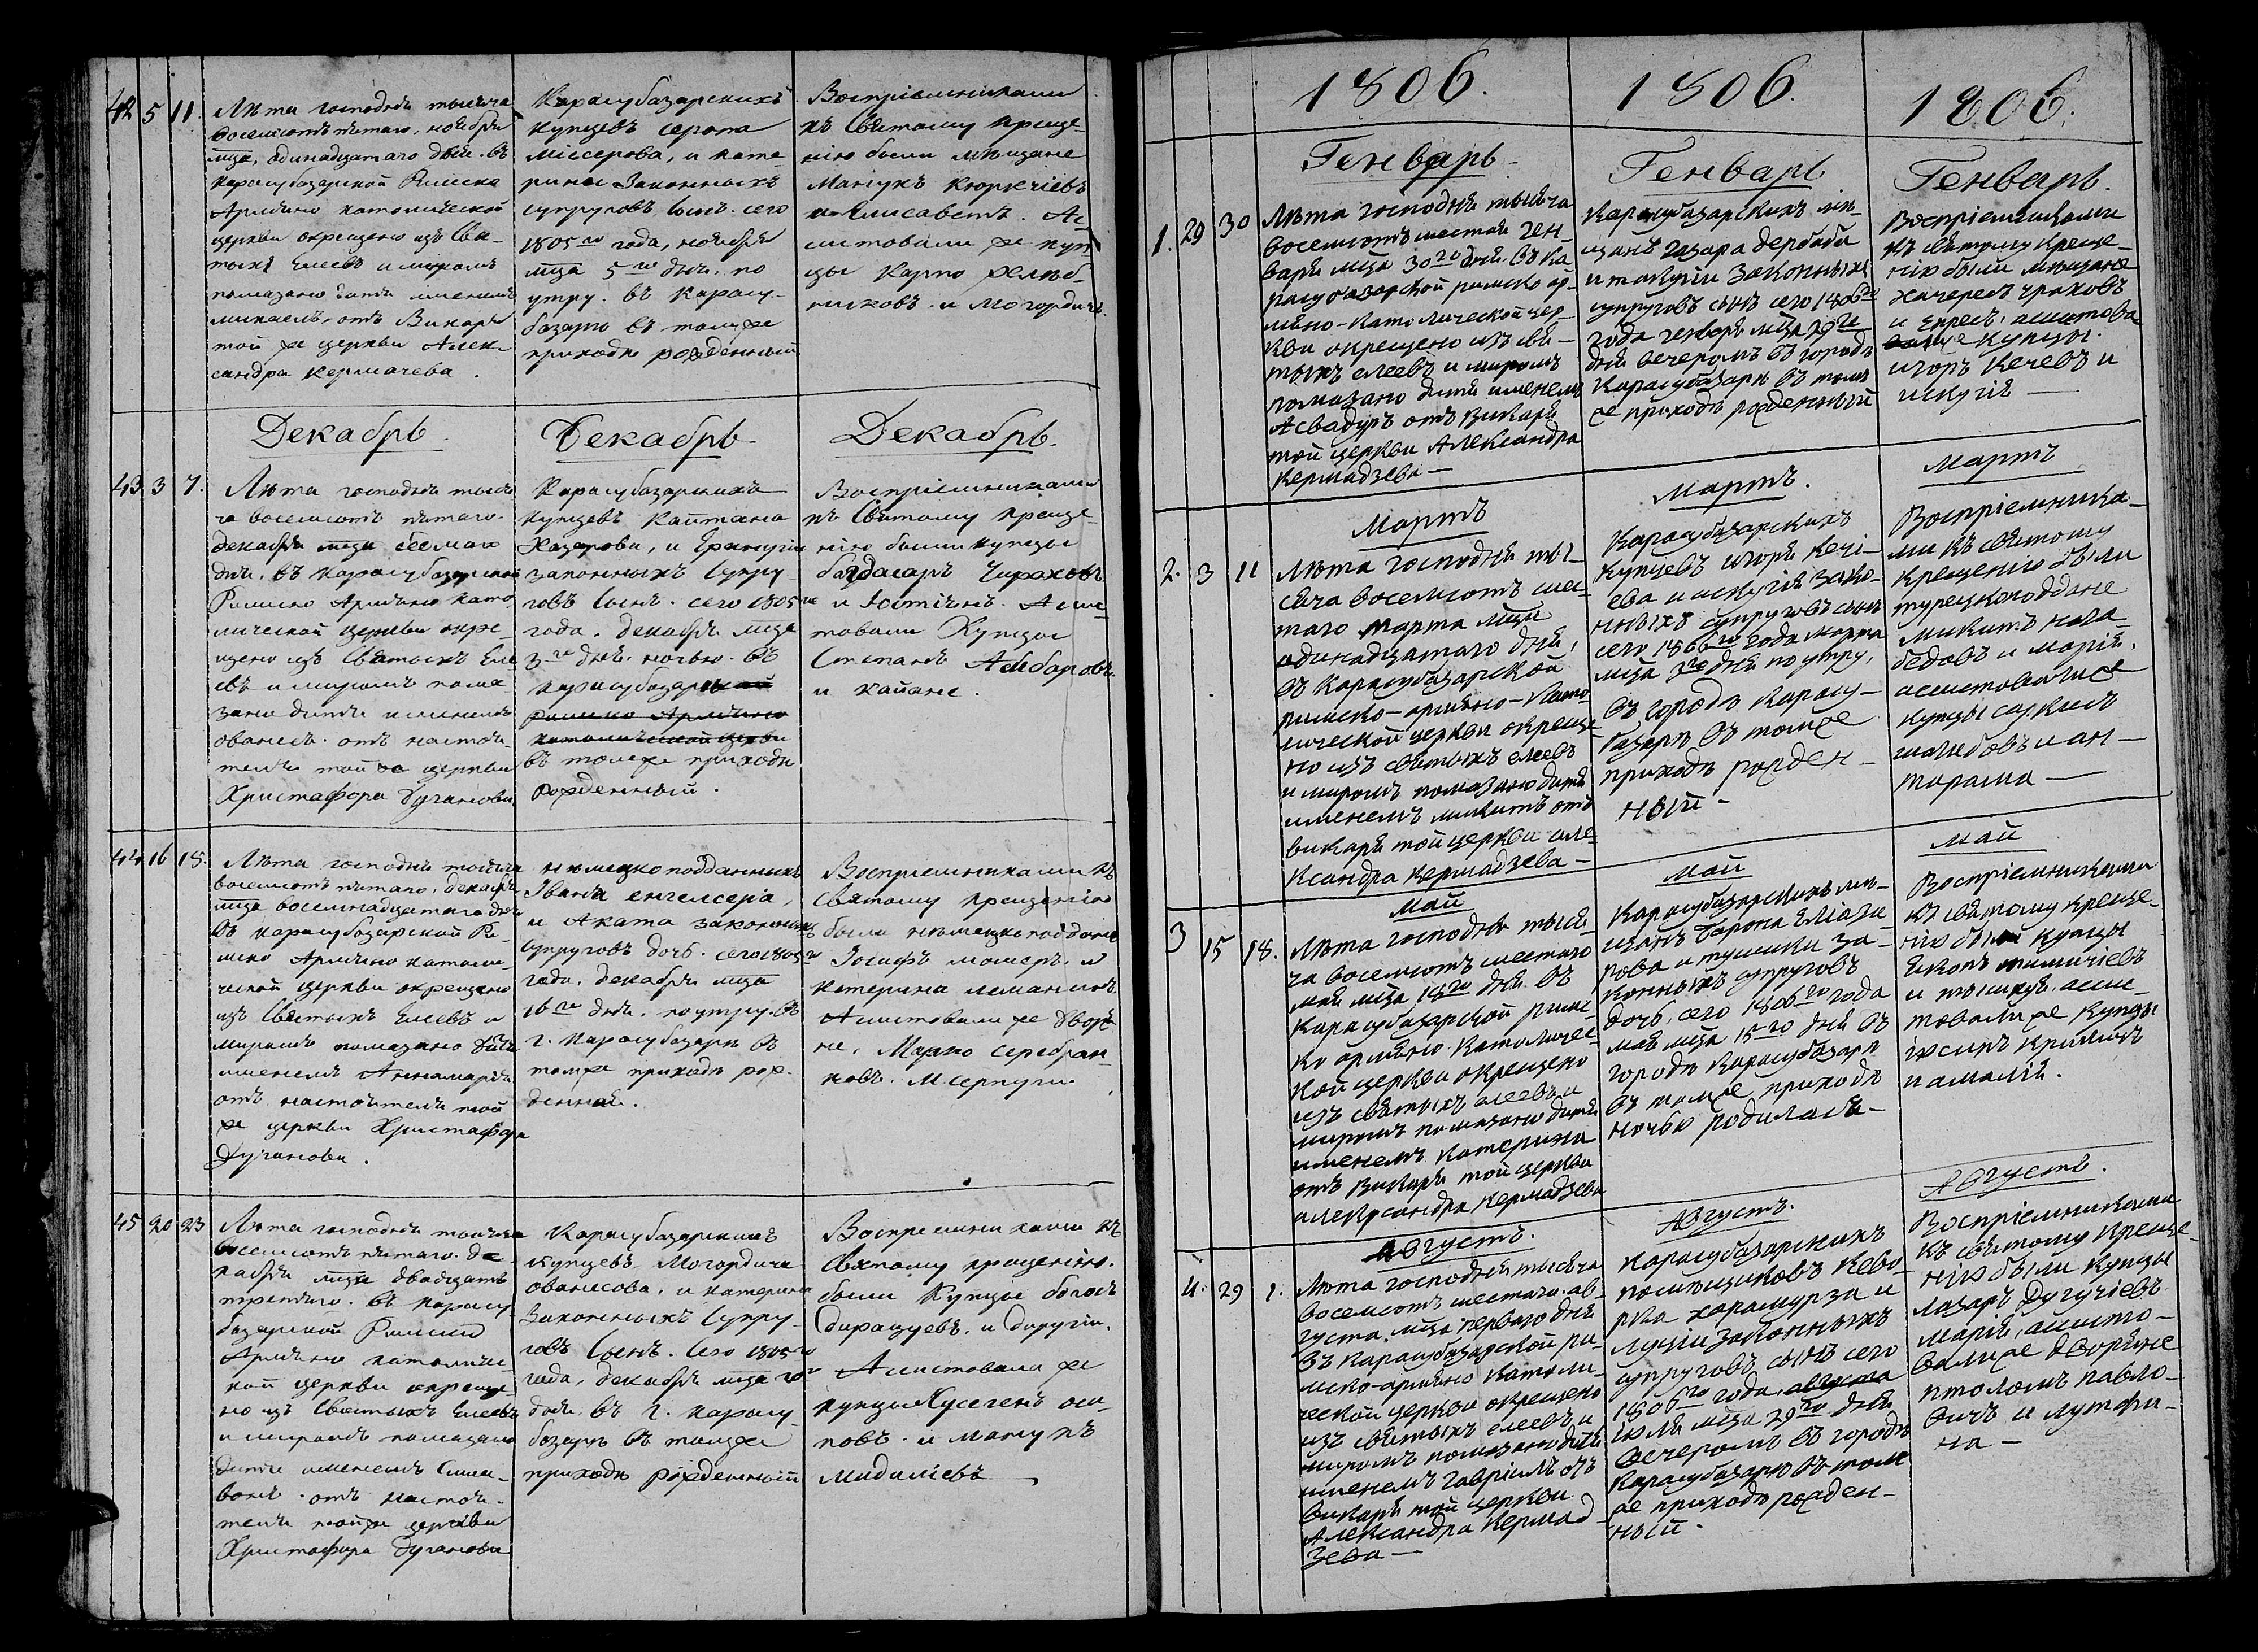 42 5 11.
Лѣта господня тысяча
восемьсотъ пятаго, ноября
мца, одинадцатаго дня. въ
Карасубазарской Римско
Армяно католической
церкви окрещено изъ Свя-
тыхъ Елеевъ и миромъ
помазано дитя именемъ
микаель, отъ Викаря
той же церкви Алек-
сандра Кермачева.
Карасубазарскихъ
купцевъ серопа
Миссерова, и кате
рины Законныхъ
супруговъ сынъ. сего
1805го года, ноября
мца 5го дня. по
утру. въ Карасу-
базарѣ въ томъ же
приходѣ рожденный
Воспріемниками
къ Святому креще-
нію были мѣщане
Манукъ Кюркчіевъ
и Елисаветъ. Ас-
систовали же куп
цы Карпо
и Могордичь.
Декабрь
Декабрь
Декабрь.
43 3 7.
Лѣта господня тыся
ча восемьсотъ пятаго.
декабря мца седмаго
дня. въ Карасубазарской
Римско Армяно като
лической церкви окре-
щено изъ Святыхъ Еле
евъ и миромъ пома-
зано дитя именемъ
ованесъ. отъ настоя-
теля той же церкви
Христафора Дуганова
Карасубазарскихъ
купцевъ Кайтана
Хазерова, и Ерануги
законныхъ Супру-
говъ Сынъ. сего 1805го
года. декабря мца
3го дня. ночью. въ
Карасубазарской
Римско Армяно
католической церкви
въ томъ же приходѣ
Рожденный.
Воспріемниками
къ Святому креще-
нію были купцы
багдасаръ Чираховъ
и Юстіянъ. Асис
товали Купцы
Степанъ Амбаровъ.
и кайане.
44 16 18.
Лѣта господня тысяча
восемьсотъ пятаго, декабря
мца восемнадцатаго дня
въ Карасубазарской Ри-
мско Армяно католи-
ческой церкви окрещено
изъ Святыхъ Елеевъ и
миромъ помазано дитя
именемъ Аннамарія
отъ настоятеля той
же церкви Христафора
Дуганова.
нѣмецкоподданныхъ
Ивана енгелсера,
и Аката законныхъ
супруговъ дочь. сего 1805го
года, декабря мца
16го дня. поутру. въ
г. Карасубазарѣ въ
томъ же приходѣ рож-
денная.
Воспріемниками къ
Святому крещенію
были нѣмецкоподданые
Іосифъ момеръ. и
катерина
Асистовали же дворя
не. Марко Серебря-
ковъ. и серпуги
45 20 23
Лѣта господня тысяча
восемьсотъ пятаго. де
кабря мца двадцать
третяго. въ Карасу
базарской Римско
Армяно католиче
ской церкви окреще
но изъ Святыхъ Елеевъ
и миромъ помазано
дитя именемъ Сима-
вонъ. отъ настоя-
теля той же церкви
Христафора Дуганова
Карасубазарскихъ
купцевъ. Могордича
ованесова, и катерина
Законныхъ Супру-
говъ Сынъ. Сего 1805го
года, декабря мца 20го
дня. въ г. Карасу-
базарѣ въ томъ же
приходѣ рожденный
Воспріемниками къ
Святому крещенію.
были Купцы богосъ
Сарацуевъ. и
Асистовали же
купцы Хусегенъ оси-
повъ. и манукъ
1806.
1806.
1806.
Генварь
Генварь
Генварь.
1. 29 30
Лѣта господня тысяча
восемьсотъ шестой ген
варя мца 30го дня. въ Ка
расубазарской римско ар-
мяно-Католической цер-
кви окрещено изъ свя-
тыхъ елеевъ и миромъ
помазано дитя именемъ
Асвадуръ отъ Викаря
той церкви Александра
Кермадзева —
Карасубазарскихъ мѣ-
щанъ газара дербаба
и законныхъ
супруговъ сынъ сего 1806го
года генваря мца 29го
дня вечеромъ въ городѣ
Карасубазарѣ въ томъ
же приходѣ рожденный
Воспріемниками
къ святому Креще-
нію были мѣщане
хачересъ чраховъ
и Епресъ. асистова
же Купцы.
игоръ Кечевъ и
искугія —
Мартъ
Мартъ.
Мартъ
2. 3 11
Лѣта господня ты-
сяча восемьсотъ шес-
таго марта мца
одинадцатаго дня,
въ Карасубазарской
римско-армяно-Като
лической церкви окреще
но изъ святыхъ елеевъ
и миромъ помазано дитя
именемъ микитъ отъ
викаря той церкви але-
ксандра Кермадзева —
Карасубазарскихъ
Купцевъ игоря кечі-
ева и искугія зако-
нныхъ супруговъ сынъ
сего 1806го года марта
мца 3го дня по утру,
въ городѣ Карасу-
базарѣ въ томъ же
приходѣ рожден-
ный -
Воспріемника-
ми къ святому
Крещенію были
турецкоподдане
микитъ нага-
бедовъ и марія.
асистовали же
купцы саркисъ
шагибовъ и ан-
тарама —
Май
Май
Май
3 15 18.
Лѣта господня тыся-
ча восемьсотъ шестаго
мая мца 18го дня. въ
Карасубазарской римс-
ко армяно Католичес-
кой церкви окрещено
изъ святыхъ елеевъ и
миромъ помазано дитя
именемъ Катерина
отъ Викаря той церкви
александра Кермадзева
Карасубазарскихъ мѣ-
щанъ Барона Еліаза
рова и тушики за-
конныхъ супруговъ
дочь, сего 1806го года
мая мца 15го дня въ
городѣ Карасубазарѣ
въ томъ же приходѣ
ночью родилась —
Воспріемниками
къ святому креще-
нію были купцы
Якопъ
и асис-
товали же Купцы
и амалія.
Августъ.
Августъ.
Августъ.
4. 29 1.
Лѣта господня тысяча
восемьсотъ шестаго. ав-
густа. мца перваго дня
въ Карасубазарской ри-
мско-армяно Католи-
ческой церкви окрещено
изъ святыхъ елеевъ и
миромъ помазано дитя
именемъ гавріилъ отъ
викаря той церкви
Александра Кермад
зева —
Карасубазарскихъ
помѣщиковъ Кево-
рка харамурза и
луціи законныхъ
супруговъ сынъ сего
1806го года, августа
іюля мца 29го дня
вечеромъ въ городѣ
Карасубазарѣ въ томъ
же приходѣ рожден-
ный.
Воспріемниками
къ святому Креще-
нію были Купцы
лазаръ Дугучіевъ
марія, асисто-
вали же дворяне
птоломъ павло-
вичъ и лутфи-
на —